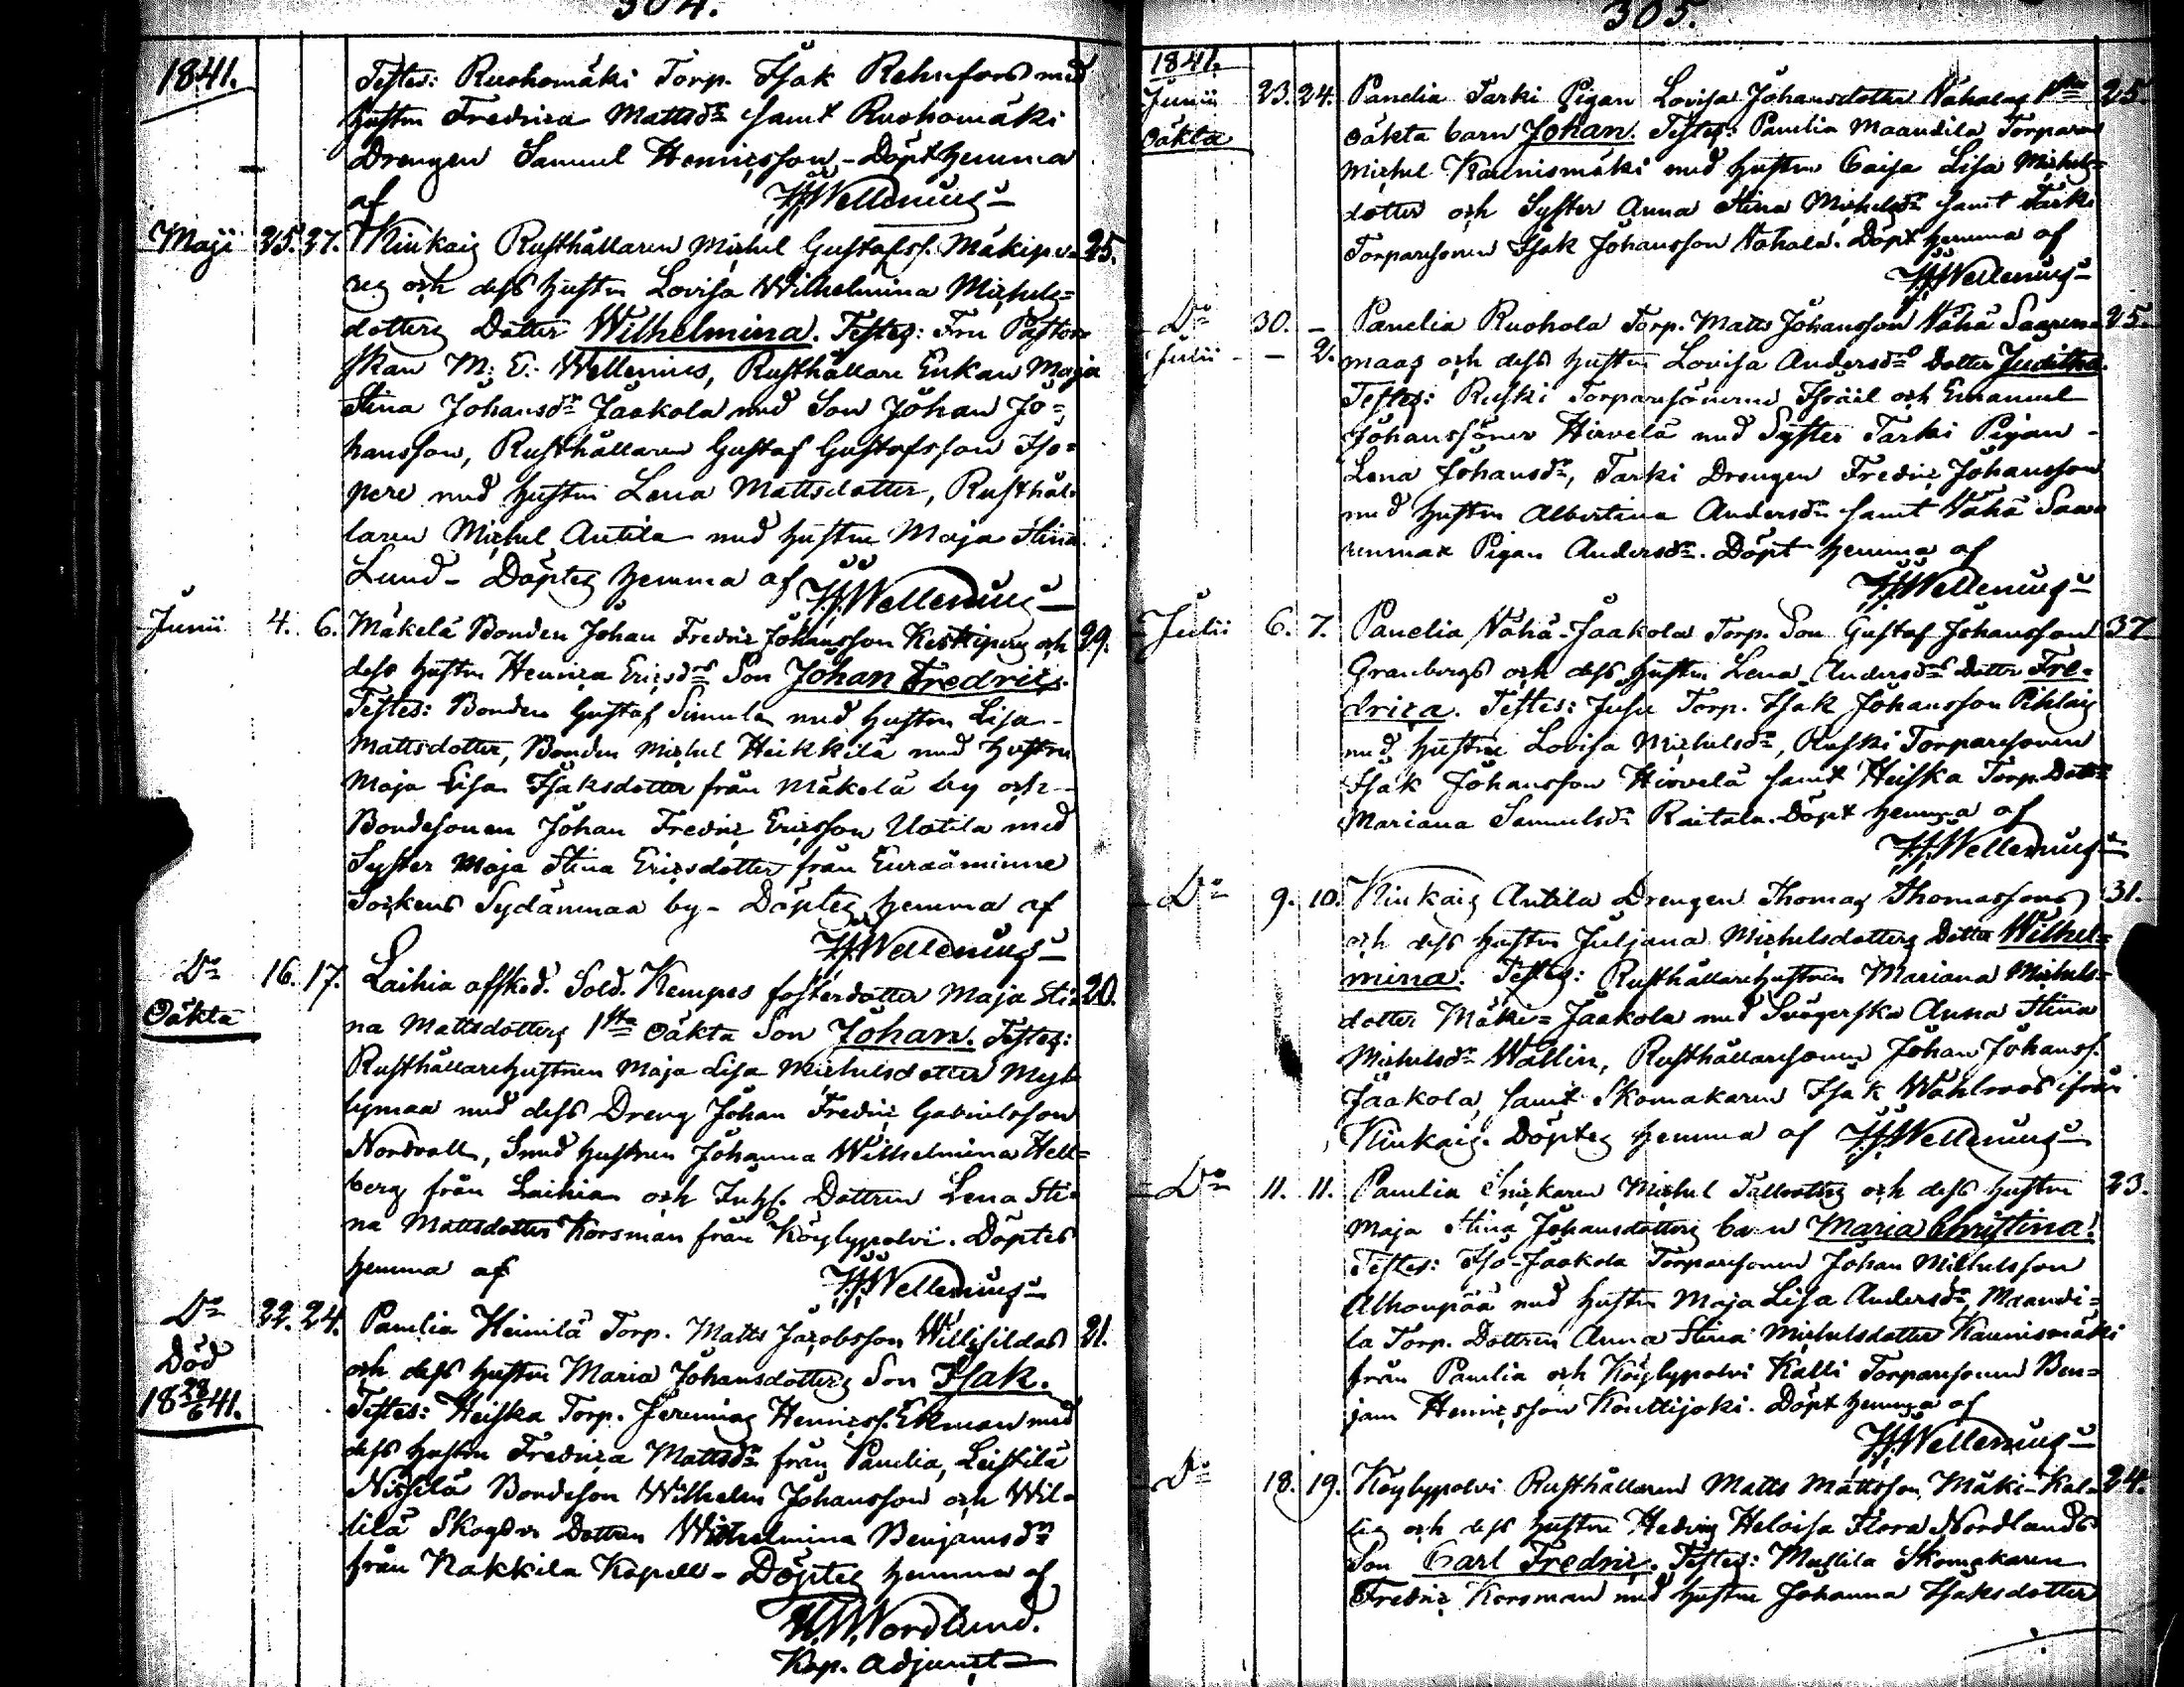 304.
1841.
Testes: Ruohomäki Torp. Isak Rehnfors med
hustru Fredrica Mattsdr samt Ruohomäki
Drengen Samuel Henricsson - Döpt hemma
af HJWellenius
Maji 25. 27. Kiukais Rusthållaren Michel Gustafss. Mäkipe- 25.
res och dess hustru Lovisa Wilhelmina Michels=
dotters Dotter Wilhelmina. Testes: Fru Pastor-
skan M: E: Wellenius, Rusthållare Enkan Maja
Stina Johansdr Jaakola med Son Johan Jo=
hansson, Rusthållaren Gustaf Gustafsson Iso=
pere med hustru Lena Mattsdotter, Rusthål-
laren Michel Antila med hustru Maja Stina
Lund - Döptes hemma af HJWellenius
Junii 4. 6. Mäkelä Bonden Johan Fredric Johansson Keskiperes och 29.
dess hustru Henrica Ericsdrs Son Johan Fredric.
Testes: Bonden Gustaf Simula med hustru Lisa
Mattsdotter, Bonden Michel Heikkilä med hustru
Maja Lisa Isaksdotter från Mäkelä by och
Bondesonen Johan Fredric Ericsson Uotila med
Syster Maja Stina Ericsdotter från Euraåminne
Sockens Sydänmaa by - Döptes hemma af
HJWellenius
Do 16. 17. Laihia afsked. Sold. Kempes fosterdotter Maja Sti- 20.
Oäkta
na Mattsdotters 1sta Oäkta Son Johan. Testes:
Rusthållarehustrun Maja Lisa Michelsdotter Myl-
lymaa med dess Dreng Johan Fredric Gabrielsson
Nordvall, Smed hustrun Johanna Wilhelmina Hell=
berg från Laihia och Inhs. Dottren Lena Sti-
na Mattsdotter Korsman från Köylypolvi. Döptes
hemma af HJWellenius
Do 22. 24. Panelia Heinilä Torp. Matts Jacobsson Willisildas 21.
Död
28/6 1841.
och dess hustru Maria Johansdotters Son Isak.
Testes: Heiska Torp. Jeremias Henricss. Ekman med
dess hustru Fredrica Mattsdr från Panelia, Leistilä
Nissilä Bondeson Wilhelm Johansson och Wil-
lilä Skogsv. Dottren Wilhelmina Benjamsdr
från Nakkila Kapell - Döptes hemma af
Nordlund.
Kap. Adjunct
305.
1841.
Junii 23. 24. Panelia Tarki Pigan Lovisa Johansdotter Nahalas 1sta 25.
Oäkta
oäkta barn Johan. Testes: Panelia Maandila Torparen
Michel Kaunismäki med hustru Caisa Lisa Michels=
dotter och Syster Anna Stina Michelsdr samt Tarki
Torparesonen Isak Johansson Nahala. Döpt hemma af
HJWellenius
Do 30. - Panelia Ruohola Torp. Matts Johansson Vähä Saaren- 25.
Julii - 2. maas och dess hustru Lovisa Andersdrs Dotter Juditha.
Testes: Ruski Torparesönerne Israël och Emanuel
Johanssöner Hirvelä med Syster Tarki Pigan
Lena Johansdr, Tarki Drengen Fredric Johansson
med hustru Albertina Andersdr samt Vähä Saa-
renmaa Pigan Andersdr. Döpt hemma af
HJWellenius
Julii 6. 7. Panelia Vähä-Jaakola Torp. Son Gustaf Johansson 37.
Granbergs och dess hustru Lena Andersdrs dotter Fre-
drica. Testes: Jusu Torp. Isak Johansson Pihlais
med hustru Lovisa Michelsdr, Ruski Torparesonen
Isak Johansson Hirvelä samt Heiska Torp. Dottr
Mariana Samuelsdr Raitala. Döpt hemma af
HJWellenius
Do 9. 10. Kiukais Antila Drengen Thomas Thomassons 31.
och dess hustru Juljana Michelsdotters Dotter Wilhel=
mina. Testes: Rusthållarehustrun Mariana Michels=
dotter Mäki=Jaakola med Svägerska Anna Stina
Michelsdr Wallin, Rusthållaresonen Johan Johanss.
Jaakola, samt Skomakaren Isak Wahlroos ifrån
Kiukais. Döptes hemma af HJWellenius
Do 11. 11. Panelia Snickaren Michel Tallqvists och dess hustru 23.
Maja Stina Johansdotters barn Maria Christina.
Testes: Iso-Jaakola Torparesonen Johan Michelsson
Alhonpää med hustru Maja Lisa Andersdr, Maandi=
la Torp. Dottren Anna Stina Michelsdotter Kaunismäki
från Panelia och Köylypolvi Kalli Torparesonen Ben=
jam Henricsson Kouttijoki. Döpt hemma af
HJWellenius
Do 18. 19. Köylypolvi Rusthållaren Matts Mattsson Mäki-Kal- 24.
lis och dess hustru Hedvig Heloisa Flora Nordlunds
Son Carl Fredric. Testes: Mustila Skomakaren
Fredric Korsman med hustru Johanna Isaksdotter